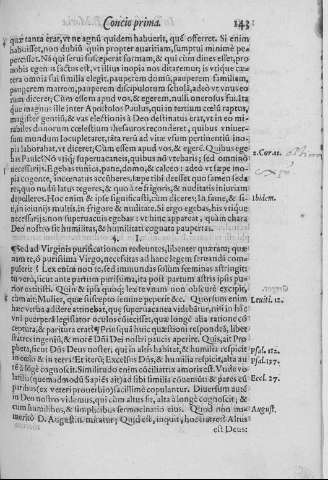 Concio prima. 143
quæ tanta erat, vt ne agnũ quidem habuerit, quẽ offerret. Si enim
habuisset, non dubiũ quin propter auaritiam, sumptui minimè pe-
percisset. Nã qui serui susceperat formam, & qui cùm diues esset, pro
nobis egenus factus est, vt illius inopia nos ditaremur; is vtique cæ-
tera omnia sui similia elegit. pauperem domũ, pauperem familiam,
pauperem matrem, pauperum discipulorum scholã, adeò vt vnus eo-
rum diceret; Cùm essem apud vos, & egerem, nulli onerosus fui. Ita-
que magnus ille inter Apostolos Paulus, qui in tertium cœlũ raptus,
magister gentiũ, & vas electionis à Deo destinatus erat, vt in eo mi-
rabiles diuinorum cœlestium thesauros reconderet, quibus vniuer-
sum mundum locupletaret,
pia laborabat, vt diceret; Cùm essem apud vos, & egerẽ. Quibus ege-
bas Paule? Nõ vtiq; superuacaneis, quibus nõ vtebaris; sed omninò
necessarijs. Egebas tunica, pane, domo, & calceo: adeò vt sæpe ino-
pia cogente,
res, quo nudũ latus tegeres, & quo à te frigoris, & nuditatis iniuriam
depelleres. Hoc enim & ipse significasti, cùm diceres; In fame, & si-
ti, in ieiunijs multis, in frigore & nuditate. Si ergo egebas, his vtique
necessarijs, non superuacuis egebas: vt hinc appareat, quàm chara
Deo nostro sit humilitas, & humilitati cognata paupertas.
2. Cor. 11.
ibidem.
§. I.
¶Sed ad Virginis purificationem redeuntes, libenter quæram; quæ-
nam te, ô purissima Virgo, necessitas ad hanc legem seruandã com-
pulerit? Lex enim non te, sed immundas solùm fœminas astringit:
tu verò, sicut ante partum purissima, ita post partum astris ipsis pu-
rior extitisti. Quin & ipsa quoq; lex te vnam non obscurè excipit,
cùm ait; Mulier, quæ suscepto semine peperit &c. Quorsum enim
hæc verba addere attinebat, quæ superuacanea videbãtur, nisi in his
vni puerperã legislator oculos cõiecisset, quæ longè alia ratione cõ-
ceptura, & paritura erat? ¶ Priusquã huic quæstioni respondeã, liber
Leuit. 12.
strare ingeniũ, & morẽ Dñi Dei nostri paucis aperire. Quis, ait Pro-
pheta, sicut Dñs Deus noster, qui in altis habitat, & humilia respicit
in cœlo & in terra? Et iterũ; Excelsus Dñs, & humilia respicit, & alta
à lõgè cognoscit. Similitudo enim cõciliatrix amoris est. Vnde vo-
latilia (quemadmodũ Sapiẽs ait) ad sibi similia cõueniunt: & pares cũ
paribus (ex veteri prouerbio) facillimè copulantur. Diuersum autẽ
in Deo nostro videmus, qui cùm altus sit, alta à longè cognoscit; &
cum humilibus, & simplicibus sermocinatio eius. Quod non im-
meritò D. Augustin. miratur; Quid est, inquit, hoc fratres? Altus
est Deus:
Psal. 112.
Psal. 137.
Eccl. 27.
August.